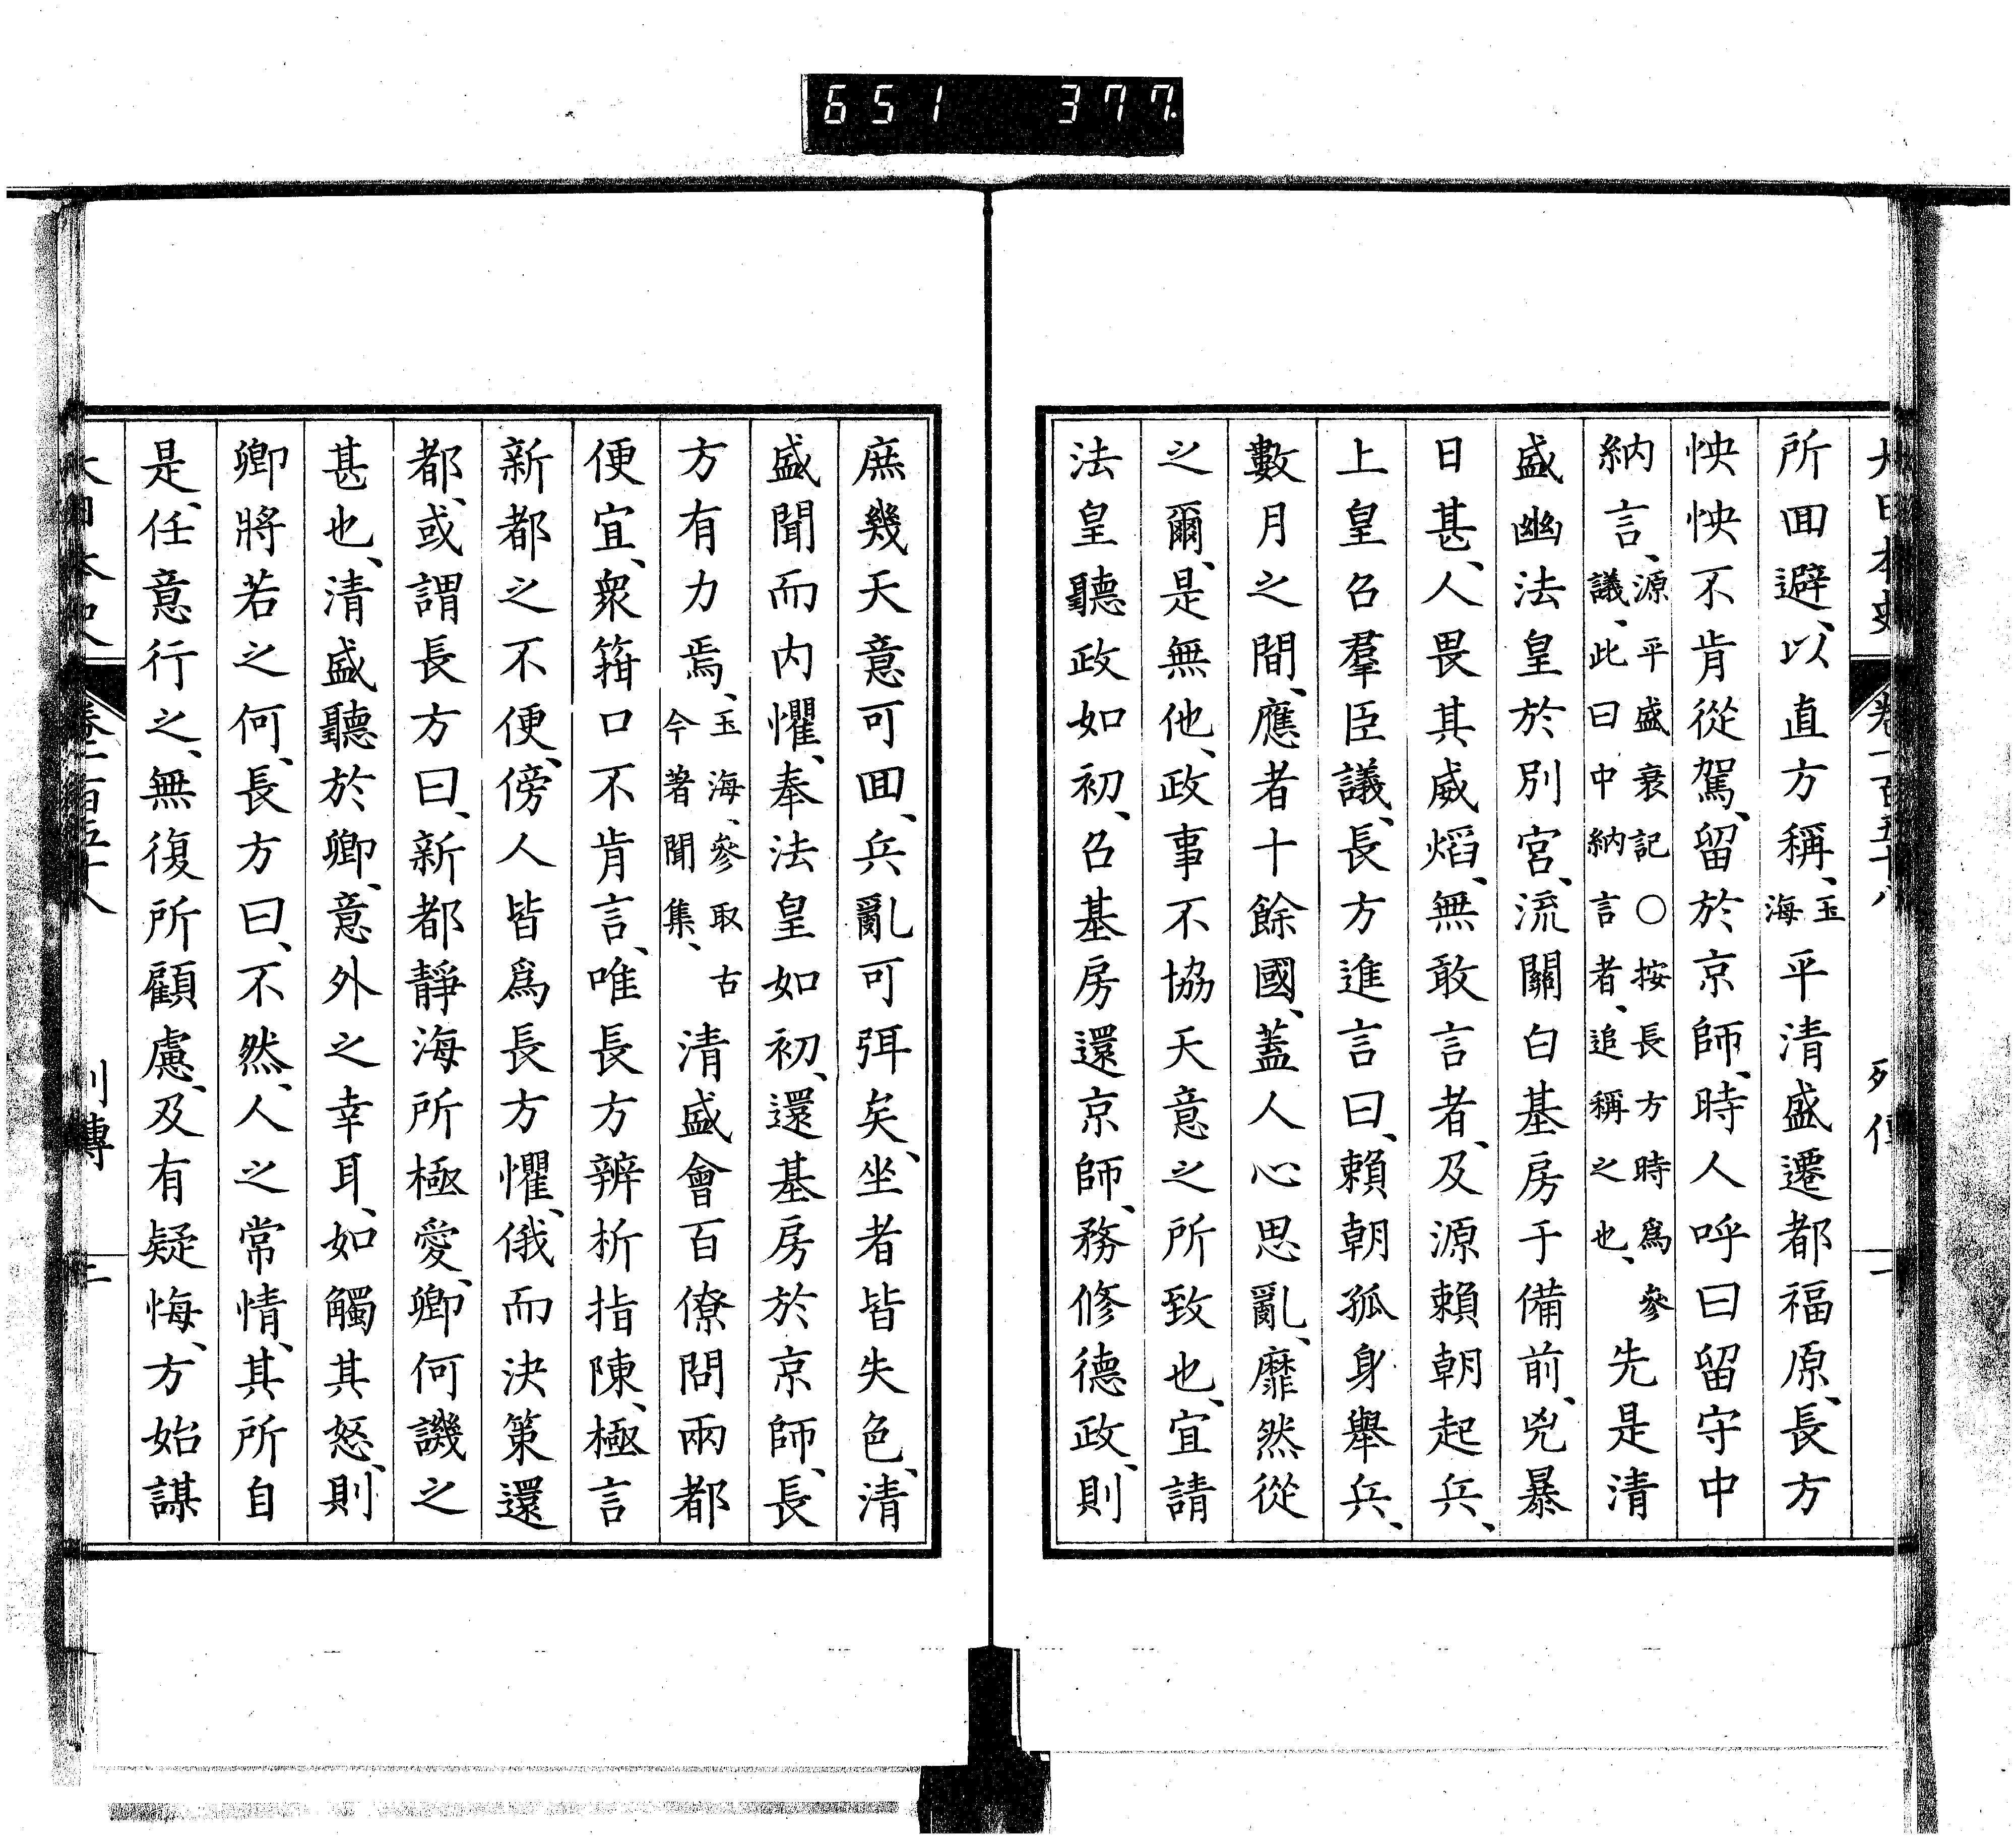 651 377
大日本史 卷一百五十八 列傳 二
所回避、以直方稱、玉海平清盛遷都福原、長方
怏怏不肯從駕、留於京師、時人呼曰留守中
納言、源平盛衰記○按長方時爲參議、此曰中納言者、追稱之也、先是清
盛幽法皇於別宮、流關白基房于備前、兇暴
日甚、人畏其威焰、無敢言者、及源賴朝起兵、
上皇召羣臣議、長方進言曰、賴朝孤身舉兵、
數月之間、應者十餘國、蓋人心思亂、靡然從
之爾、是無他、政事不協天意之所致也、宜請
法皇聽政如初、召基房還京師、務修德政、則
庶幾天意可回、兵亂可弭矣、坐者皆失色、清
盛聞而内懼、奉法皇如初、還基房於京師、長
方有力焉、玉海、參取古今著聞集、清盛會百僚問兩都
便宜、衆箝口不肯言、唯長方辨析指陳、極言
新都之不便、傍人皆爲長方懼、俄而決策還
都、或謂長方曰、新都靜海所極愛、卿何譏之
甚也、清盛聽於卿、意外之幸耳、如觸其怒、則
卿將若之何、長方曰、不然、人之常情、其所自
是、任意行之、無復所顧慮、及有疑悔、方始謀
大日本史 卷一百五十八 列傳 三